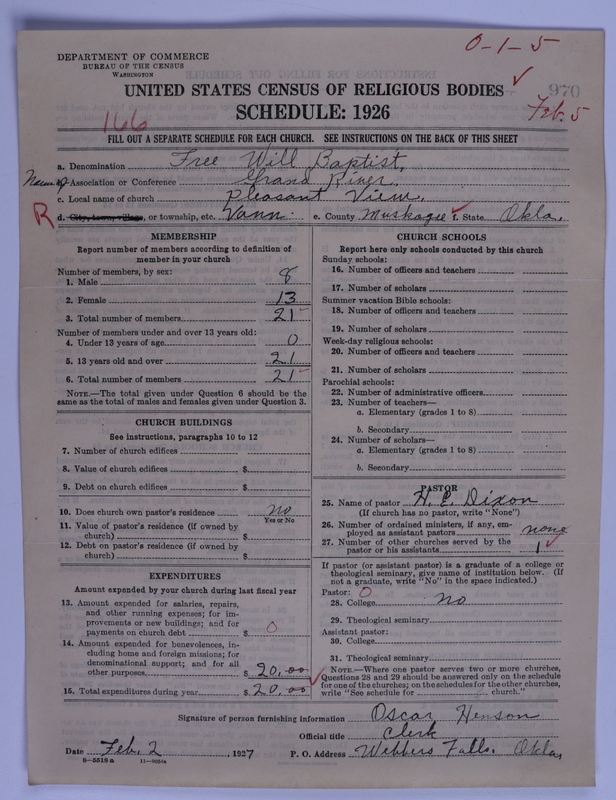 DEPARTMENT OF COMMERCE
BUREAU OF THE CENSUS
WASHINGTON
0-1-5
970
UNITED STATES CENSUS OF RELIGIOUS BODIES
SCHEDULE: 1926
Feb. 5
166
FILL OUT A SEPARATE SCHEDULE FOR EACH CHURCH. SEE INSTRUCTIONS ON THE BACK OF THIS SHEET
a. Denomination Free Will Baptist,
b. Association or Conference Grand River.
c. Local name of church Pleasant View.
R d. City, town, village, or township, etc. Vann. e. County Muskogee f. State Okla.
MEMBERSHIP
Report number of members according to definition of
member in your church
Number of members, by sex:
1. Male 8
2. Female 13
3. Total number of members 21
Number of members under and over 13 years old:
4. Under 13 years of age 0
5. 13 years old and over 21
6. Total number of members 21
NOTE.—The total given under Question 6 should be
same as the total of males and females given under Question 3.
CHURCH BUILDINGS
See instructions, paragraphs 10 to 12
7. Number of church edifices
8. Value of church edifices $
9. Debt on church edifices $
10. Does church own pastor's residence no
Yes or No
11. Value of pastor's residence (if owned by
church) $
12. Debt on pastor's residence (if owned by
church) $
EXPENDITURES
Amount expended by your church during last fiscal year
13. Amount expended for salaries, repairs,
and other running expenses; for im-
provements or new buildings; and for
payments on church debt $ 0
14. Amount expended for benevolences, in-
cluding home and foreign missions; for
denominational support; and for all
other purposes $ 20,00
15. Total expenditures during year $ 20,00
CHURCH SCHOOLS
Report here only schools conducted by this church
Sunday schools:
16. Number of officers and teachers
17. Number of scholars
Summer vacation Bible schools:
18. Number of officers and teachers
19. Number of scholars
Week-day religious schools:
20. Number of officers and teachers
21. Number of scholars
Parochial schools:
22. Number of administrative officers
23. Number of teachers—
a. Elementary (grades 1 to 8)
b. Secondary
24. Number of scholars—
a. Elementary (grades 1 to 8)
b. Secondary
PASTOR
25. Name of pastor H. E. Dixon
(If church has no pastor, write "None")
26. Number of ordained ministers, if any, em-
ployed as assistant pastors none
27. Number of other churches served by the
pastor or his assistants 1
If pastor (or assistant pastor) is a graduate of a college or
theological seminary, give name of institution below. (If
not a graduate, write "No" in the space indicated.)
Pastor: 0
28. College no
29. Theological seminary
Assistant pastor:
30. College
31. Theological seminary
NOTE.—Where one pastor serves two or more churches,
Questions 28 and 29 should be answered only on the schedule
for one of the churches; on the schedules for the other churches,
write "See schedule for church."
Signature of person furnishing information Oscar Henson
Official title Clerk
Date Feb. 2, 1927 P. O. Address Webbers Falls. Okla,
8—5518a 11—9054a